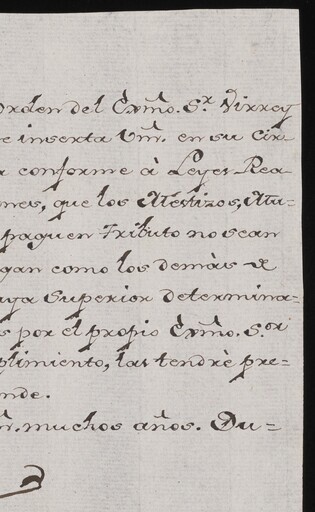 orden del Exmo. Sr. Virrey
e inserta Vm. en su Cir=
a conforme à Leyes Rea=
nes, que los Mestizos, Mu=
paguen Tributo no sean
gan como los demàs de
uya Superior determina=
s por el propio Exmo. S.or
plimiento, las tendrè pre=
nde.
m. muchos años. Du=